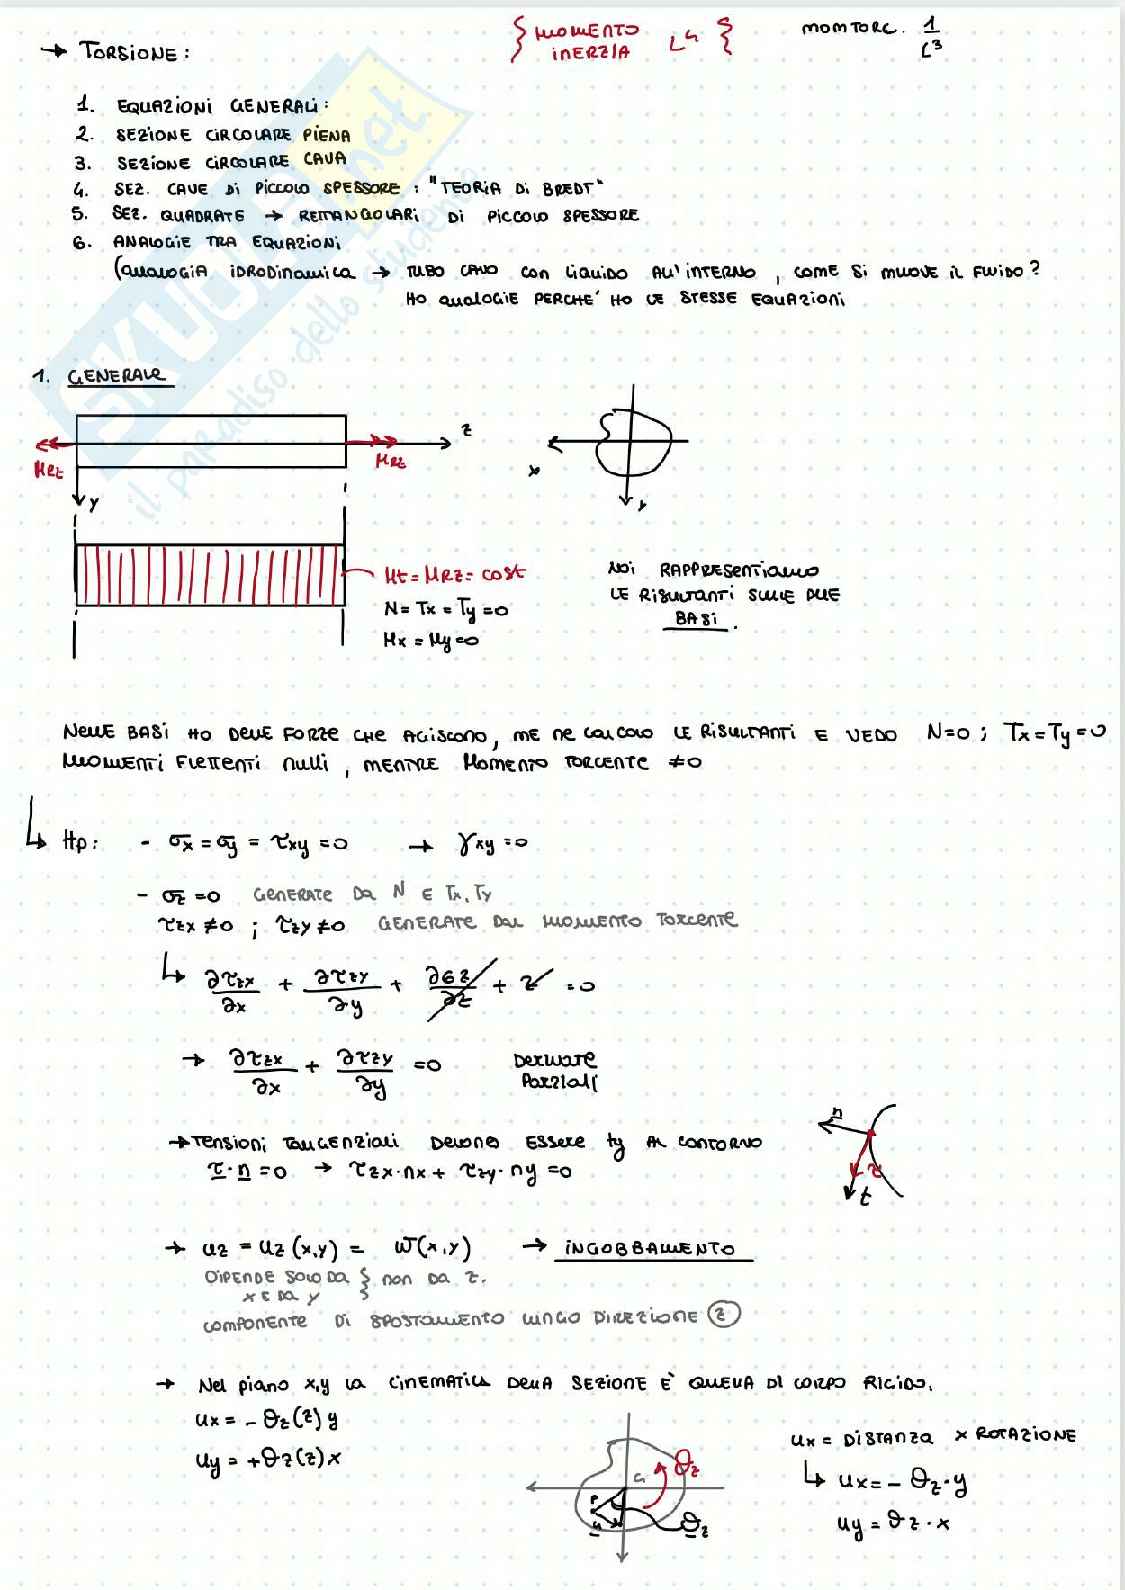 → TORSIONE:
{ MOMENTO INERZIA L⁴ }
MOM TORC. 1/L³
1. EQUAZIONI GENERALI:
2. SEZIONE CIRCOLARE PIENA
3. SEZIONE CIRCOLARE CAVA
4. SEZ. CAVE DI PICCOLO SPESSORE: "TEORIA DI BREDT"
5. SEZ. QUADRATE → RETTANGOLARI DI PICCOLO SPESSORE
6. ANALOGIE TRA EQUAZIONI
(ANALOGIA IDRODINAMICA → TUBO CAVO CON LIQUIDO ALL'INTERNO, COME SI MUOVE IL FLUIDO?
HO ANALOGIE PERCHE' HO LE STESSE EQUAZIONI
SKUOLA.net
il paradiso dello studente
1. GENERALE
z
MRz
MRz
x
y
y
Mt = MRz = cost
N = Tx = Ty = 0
Mx = My = 0
NOI RAPPRESENTIAMO
LE RISULTANTI SULLE DUE
BASI.
NELLE BASI HO DELLE FORZE CHE AGISCONO, ME NE CALCOLO LE RISULTANTI E VEDO N=0; Tx=Ty=0
MOMENTI FLETTENTI NULLI, MENTRE MOMENTO TORCENTE ≠0
↳ Hp: - σx = σy = τxy = 0 → γxy = 0
- σz = 0 GENERATE DA N E Tx, Ty
τzx ≠ 0 ; τzy ≠ 0 GENERATE DAL MOMENTO TORCENTE
↳ ∂τzx/∂x + ∂τzy/∂y + ∂σz/∂z + Z = 0
→ ∂τzx/∂x + ∂τzy/∂y = 0 DERIVATE PARZIALI
→ TENSIONI TANGENZIALI DEVONO ESSERE tg AL CONTORNO
τ · n = 0 → τzx · nx + τzy · ny = 0
n
τ
t
→ uz = uz (x,y) = w(x,y) → INGOBBAMENTO
DIPENDE SOLO DA } NON DA z.
x E DA y
COMPONENTE DI SPOSTAMENTO LUNGO DIREZIONE z
→ NEL PIANO x,y LA CINEMATICA DELLA SEZIONE E' QUELLA DI CORPO RIGIDO.
ux = - θz(z) y
uy = + θz(z) x
G
θz
P
θz
ux = DISTANZA x ROTAZIONE
↳ ux = - θz · y
uy = θz · x